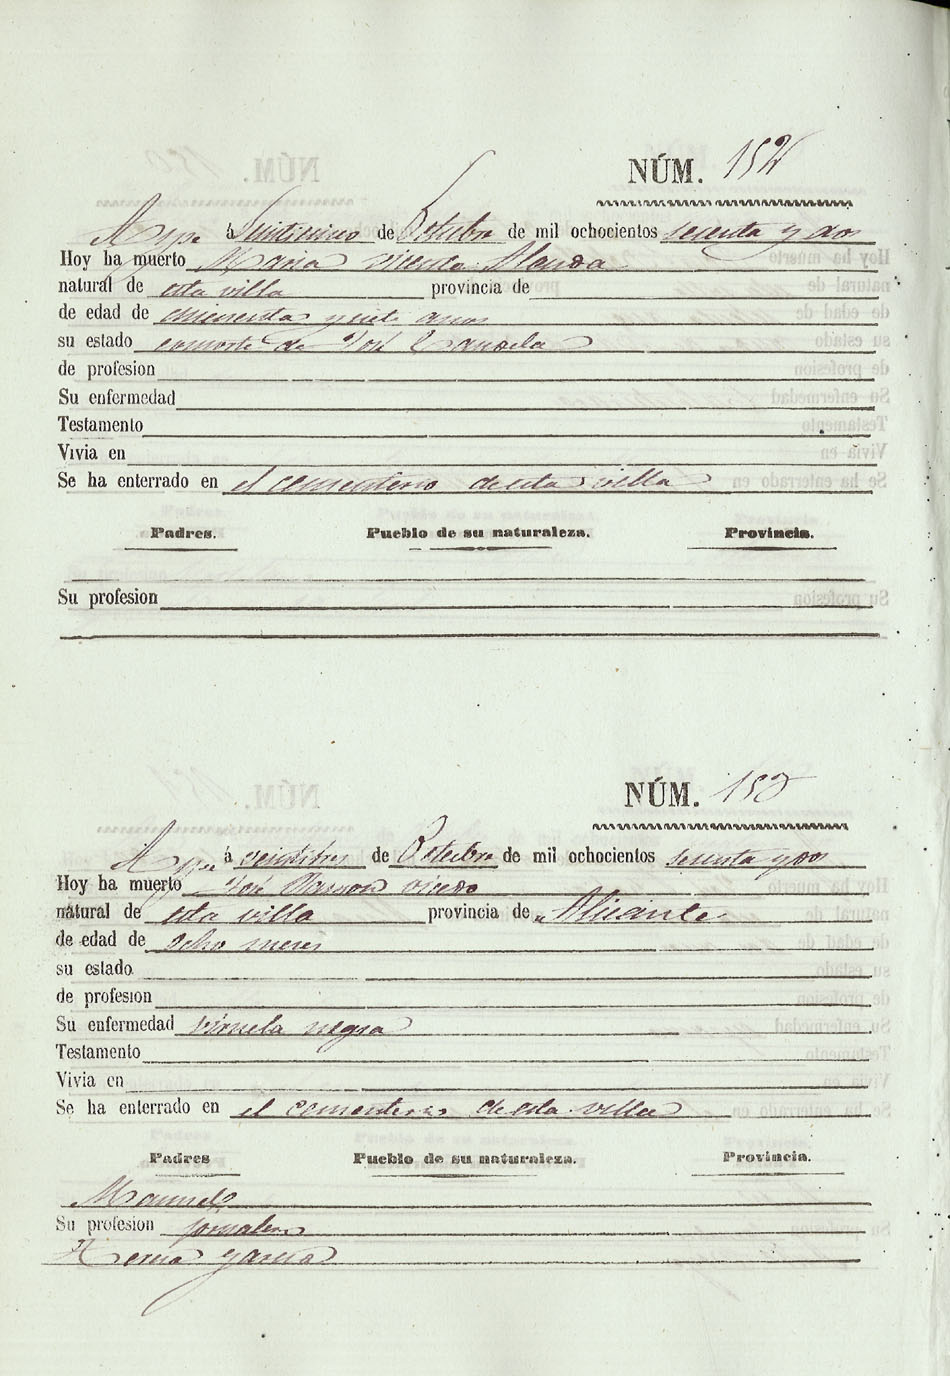 NÚM. 152
Aspe á Veinticinco de Octubre de mil ochocientos sesenta y dos
Hoy ha muerto Maria Alenda
natural de esta villa provincia de
de edad de cincuenta y siete años
su estado consorte de José Candela
de profesion
Su enfermedad
Testamento
Vivia en
Se ha enterrado en el cementerio de esta villa
Padres. Pueblo de su naturaleza. Provincia.
Su profesion
NÚM. 153
Aspe á veintitres de Octubre de mil ochocientos sesenta y dos
Hoy ha muerto José Ramon vicedo
natural de esta villa provincia de Alicante
de edad de ocho meses
su estado
de profesion
Su enfermedad viruela negra
Testamento
Vivia en
Se ha enterrado en el cementerio de esta villa
Padres Pueblo de su naturaleza. Provincia.
Manuel
Su profesion jornalero
garcia